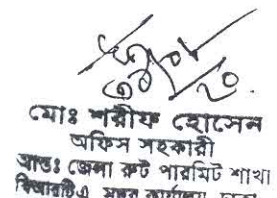 মোঃ শরীফ হোসেন
অফিস সহকারী
আন্তঃ জেলা রুট পারমিট শাখা
বিআরটিএ সদর কার্যালয়, ঢাকা